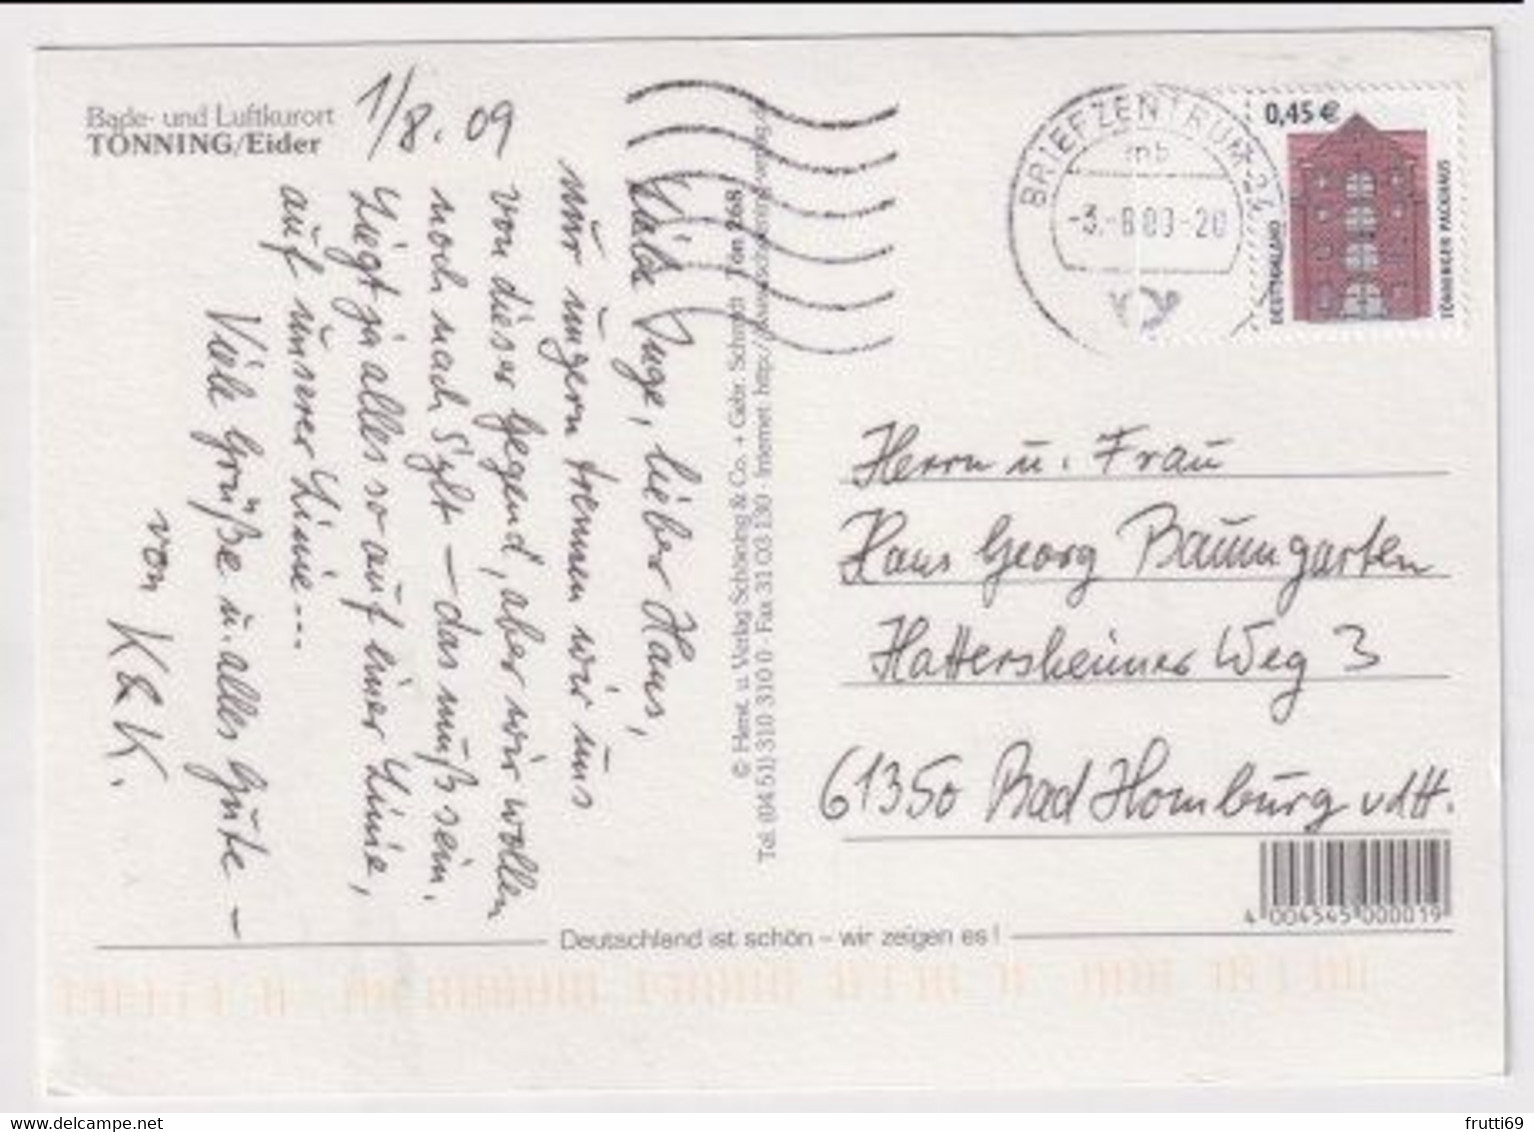 Bade- und Luftkurort
TÖNNING/Eider
1/8. 09
Inge, lieber Haus,
nur ungern trennen wir uns
von dieser Gegend, aber wir wollen
noch nach Sylt – das muß sein.
Liegt ja alles so auf einer Linie,
auf unserer Linie...
Viele Grüße u. alles Gute –
von K & K.
© Herst. u. Verlag Schöning & Co. + Gebr. Schmidt Ton 268
Tel. (04 51) 310 310 0 · Fax 31 03 130 · Internet http://
BRIEFZENTRUM 24
mb
-3.-8.09-20
0,45 €
DEUTSCHLAND
TÖNNINGER PACKHAUS
Herrn u. Frau
Hans Georg Baumgarten
Hattersheimer Weg 3
61350 Bad Homburg vdH.
4 004545 000019
Deutschland ist schön – wir zeigen es!
delcampe.net
frutti69